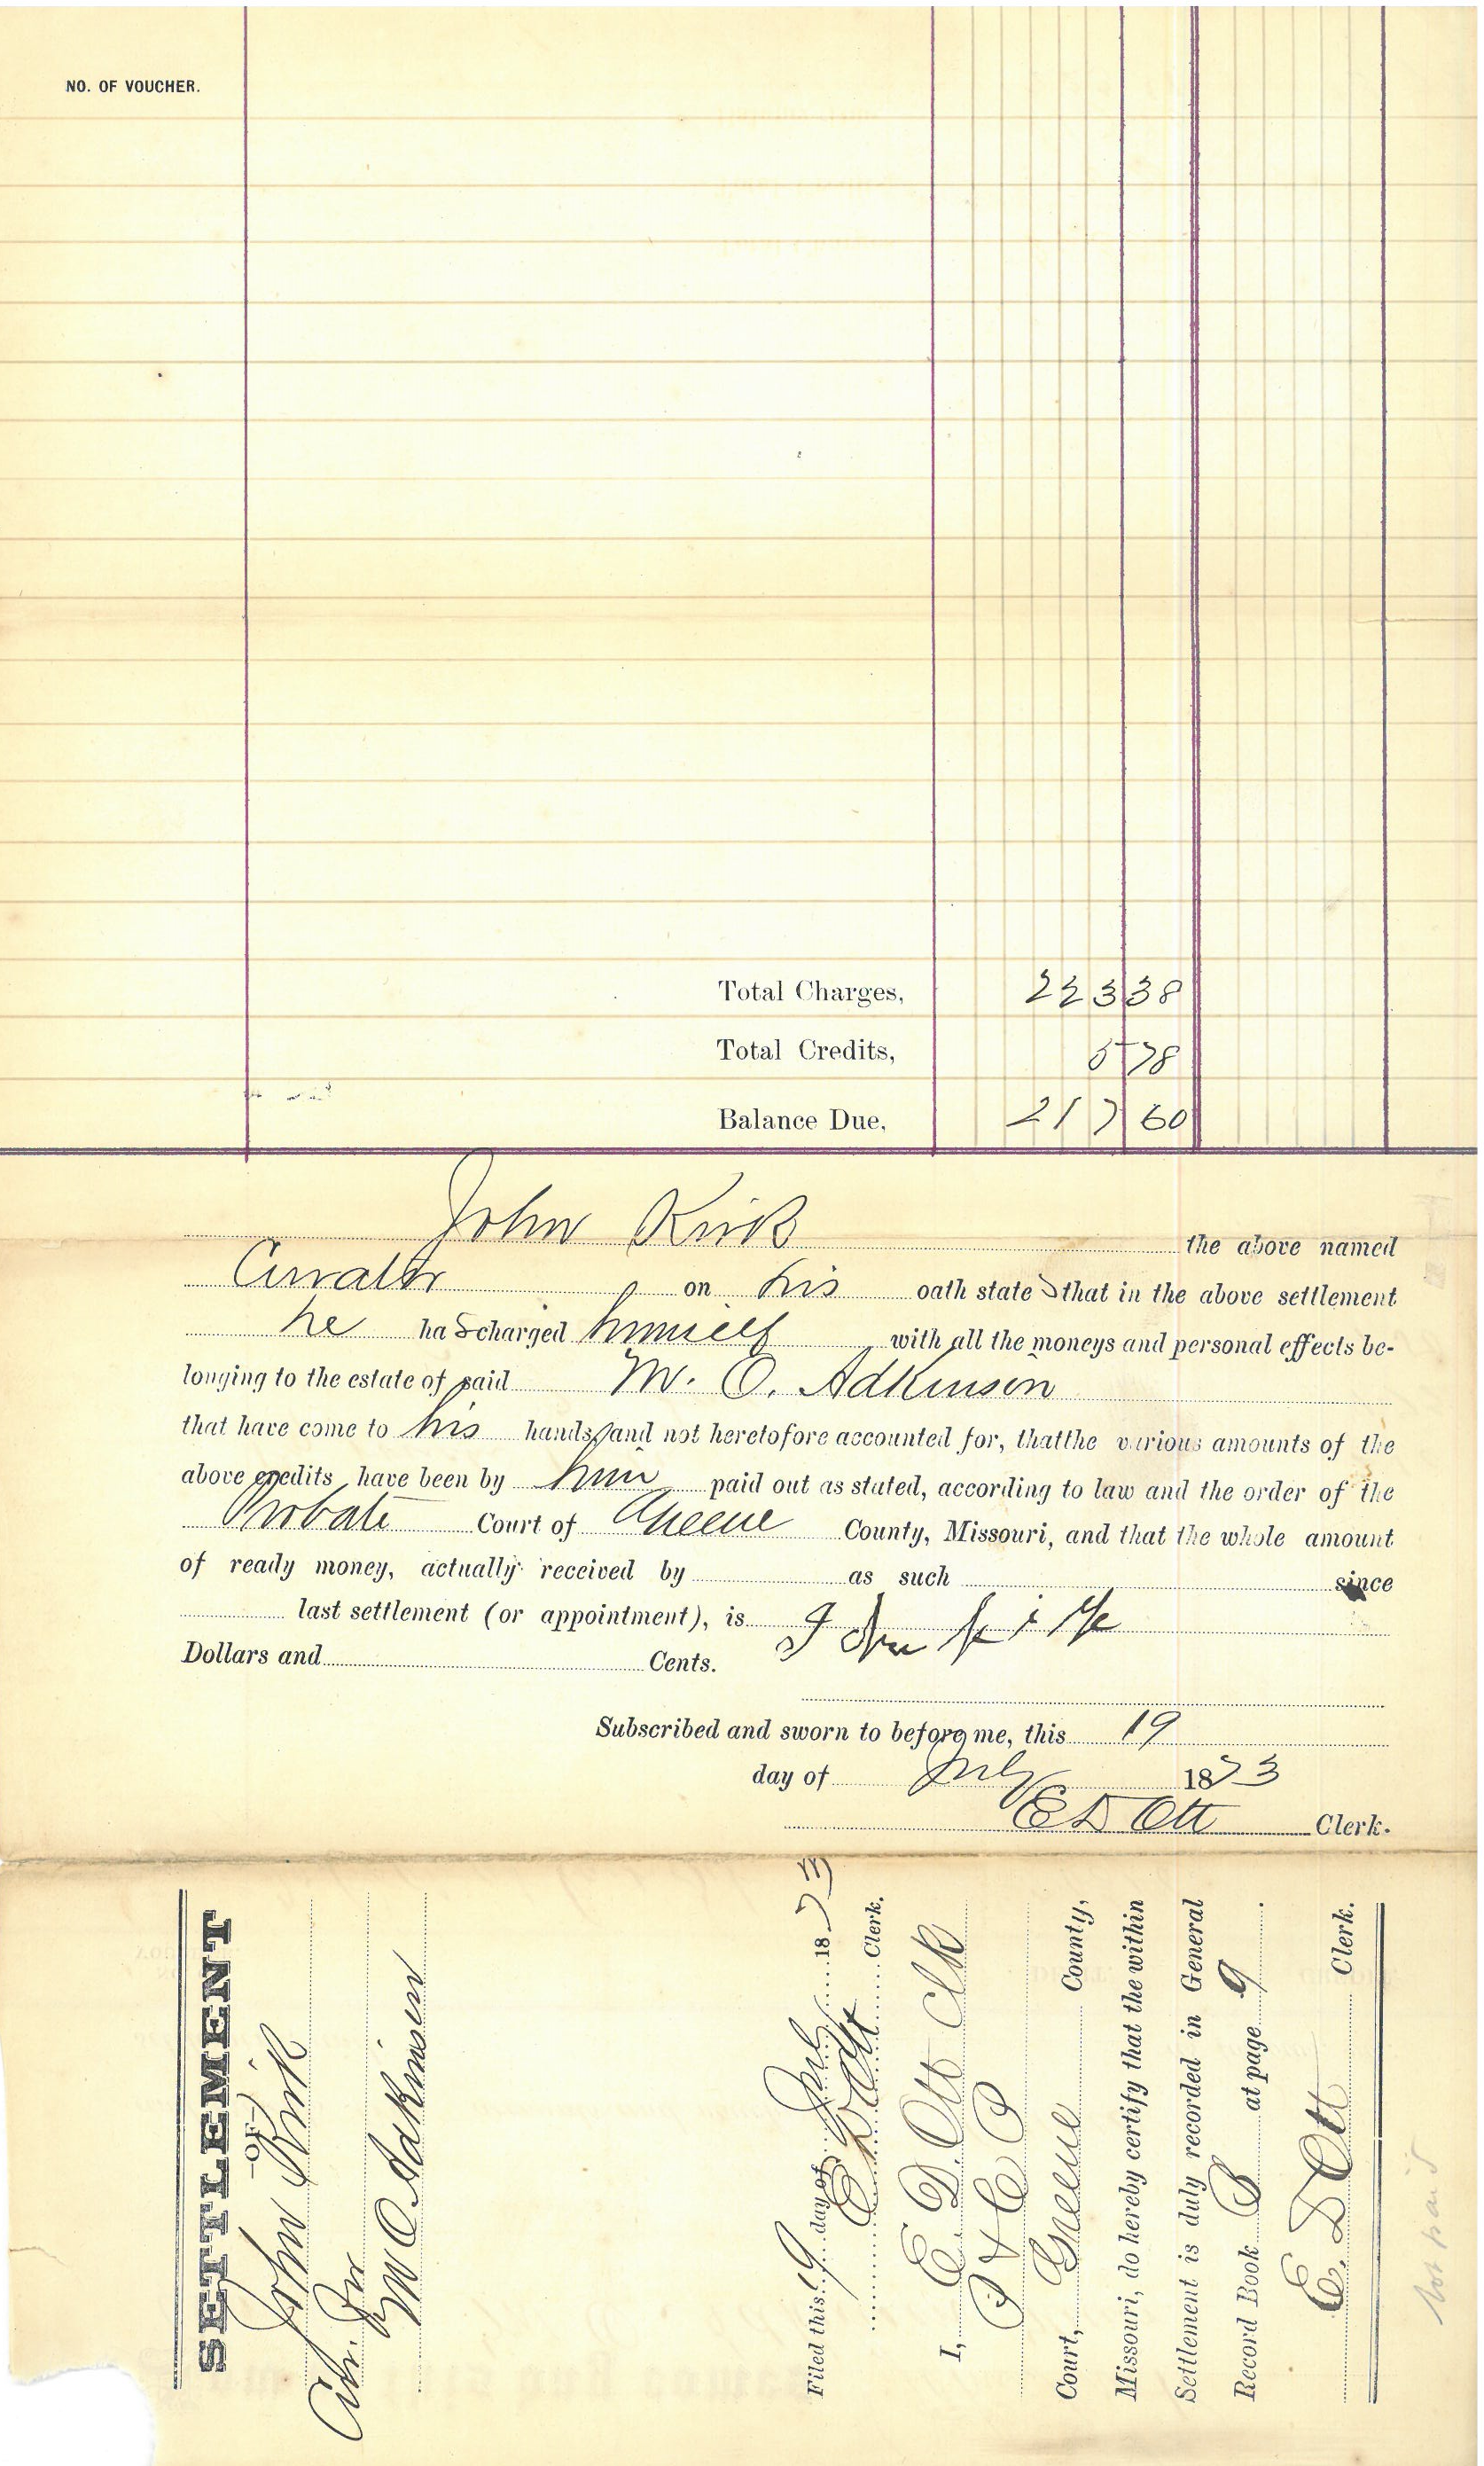 NO. OF VOUCHER.
Total Charges, 223 38
Total Credits, 5 78
Balance Due, 217 60
John Kirk the above named
Curator on his oath states that in the above settlement
he has charged himself with all the moneys and personal effects be-
longing to the estate of said M. O. Adkinson
that have come to his hands, and not heretofore accounted for, that the various amounts of the
above credits have been by him paid out as stated, according to law and the order of the
Probate Court of Greene County, Missouri, and that the whole amount
of ready money, actually received by as such since
last settlement (or appointment), is John Kirk
Dollars and Cents.
Subscribed and sworn to before me, this 19
day of July 1873
E D Ott Clerk.
SETTLEMENT
—OF—
John Kirk
Cur. for
M O Adkinson
Filed this 19 day of July 1873
E D Ott Clerk.
I, E. D. Ott Clk
P & C P
Court, Greene County,
Missouri, do hereby certify that the within
Settlement is duly recorded in General
Record Book B at page 9.
E. D Ott Clerk.
not paid